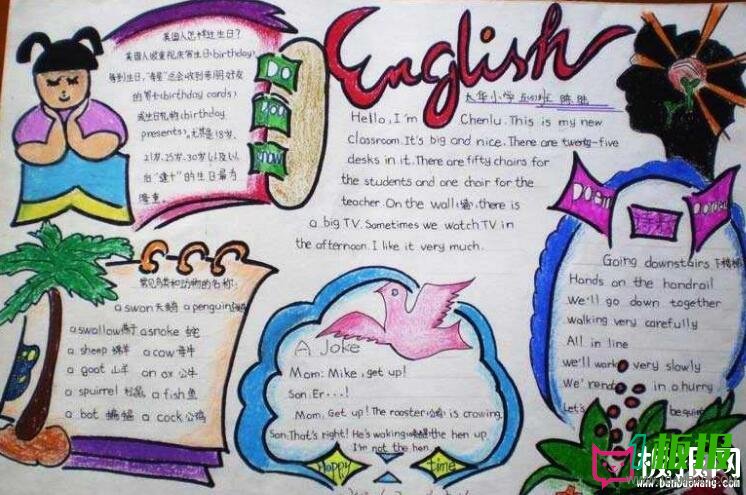 English
大华小学
Hello, I'm Chenlu. This is my new
classroom. It's big and nice. There are twenty-five
desks in it. There are fifty chairs for
the students and one chair for the
teacher. On the wall(墙), there is
a big TV. Sometimes we watch TV in
the afternoon. I like it very much.
英国人怎样过生日?
英国人很重视庆寄生日(birthday),
每到生日,"寿星"总会收到亲朋好友
的贺卡(birthday cards)
或生日礼物(birthday
presents),尤其是18岁、
21岁、25岁、30岁以及以
后"逢十"的生日最为
隆重。
DO
YOU
know
常见鸟类和动物的名称:
a swan 天鹅 a penguin 企鹅
a swallow 燕子 a snake 蛇
a sheep 绵羊 a cow 奶牛
a goat 山羊 an ox 公牛
a spuirrel 松鼠 a fish 鱼
a bat 蝙蝠 a cock 公鸡
A Joke
Mom: Mike, get up!
Son: Er···!
Mom: Get up! The rooster(公鸡) is crowing.
Son: That's right! He's waking the hen up.
I'm not the hen.
Happy
time
Going downstairs 下楼梯
Hands on the handrail
We'll go down together
walking very carefully
All in line
we'll work very slowly
We' in a hurry
Let's
板报网
www.banbaowang.com